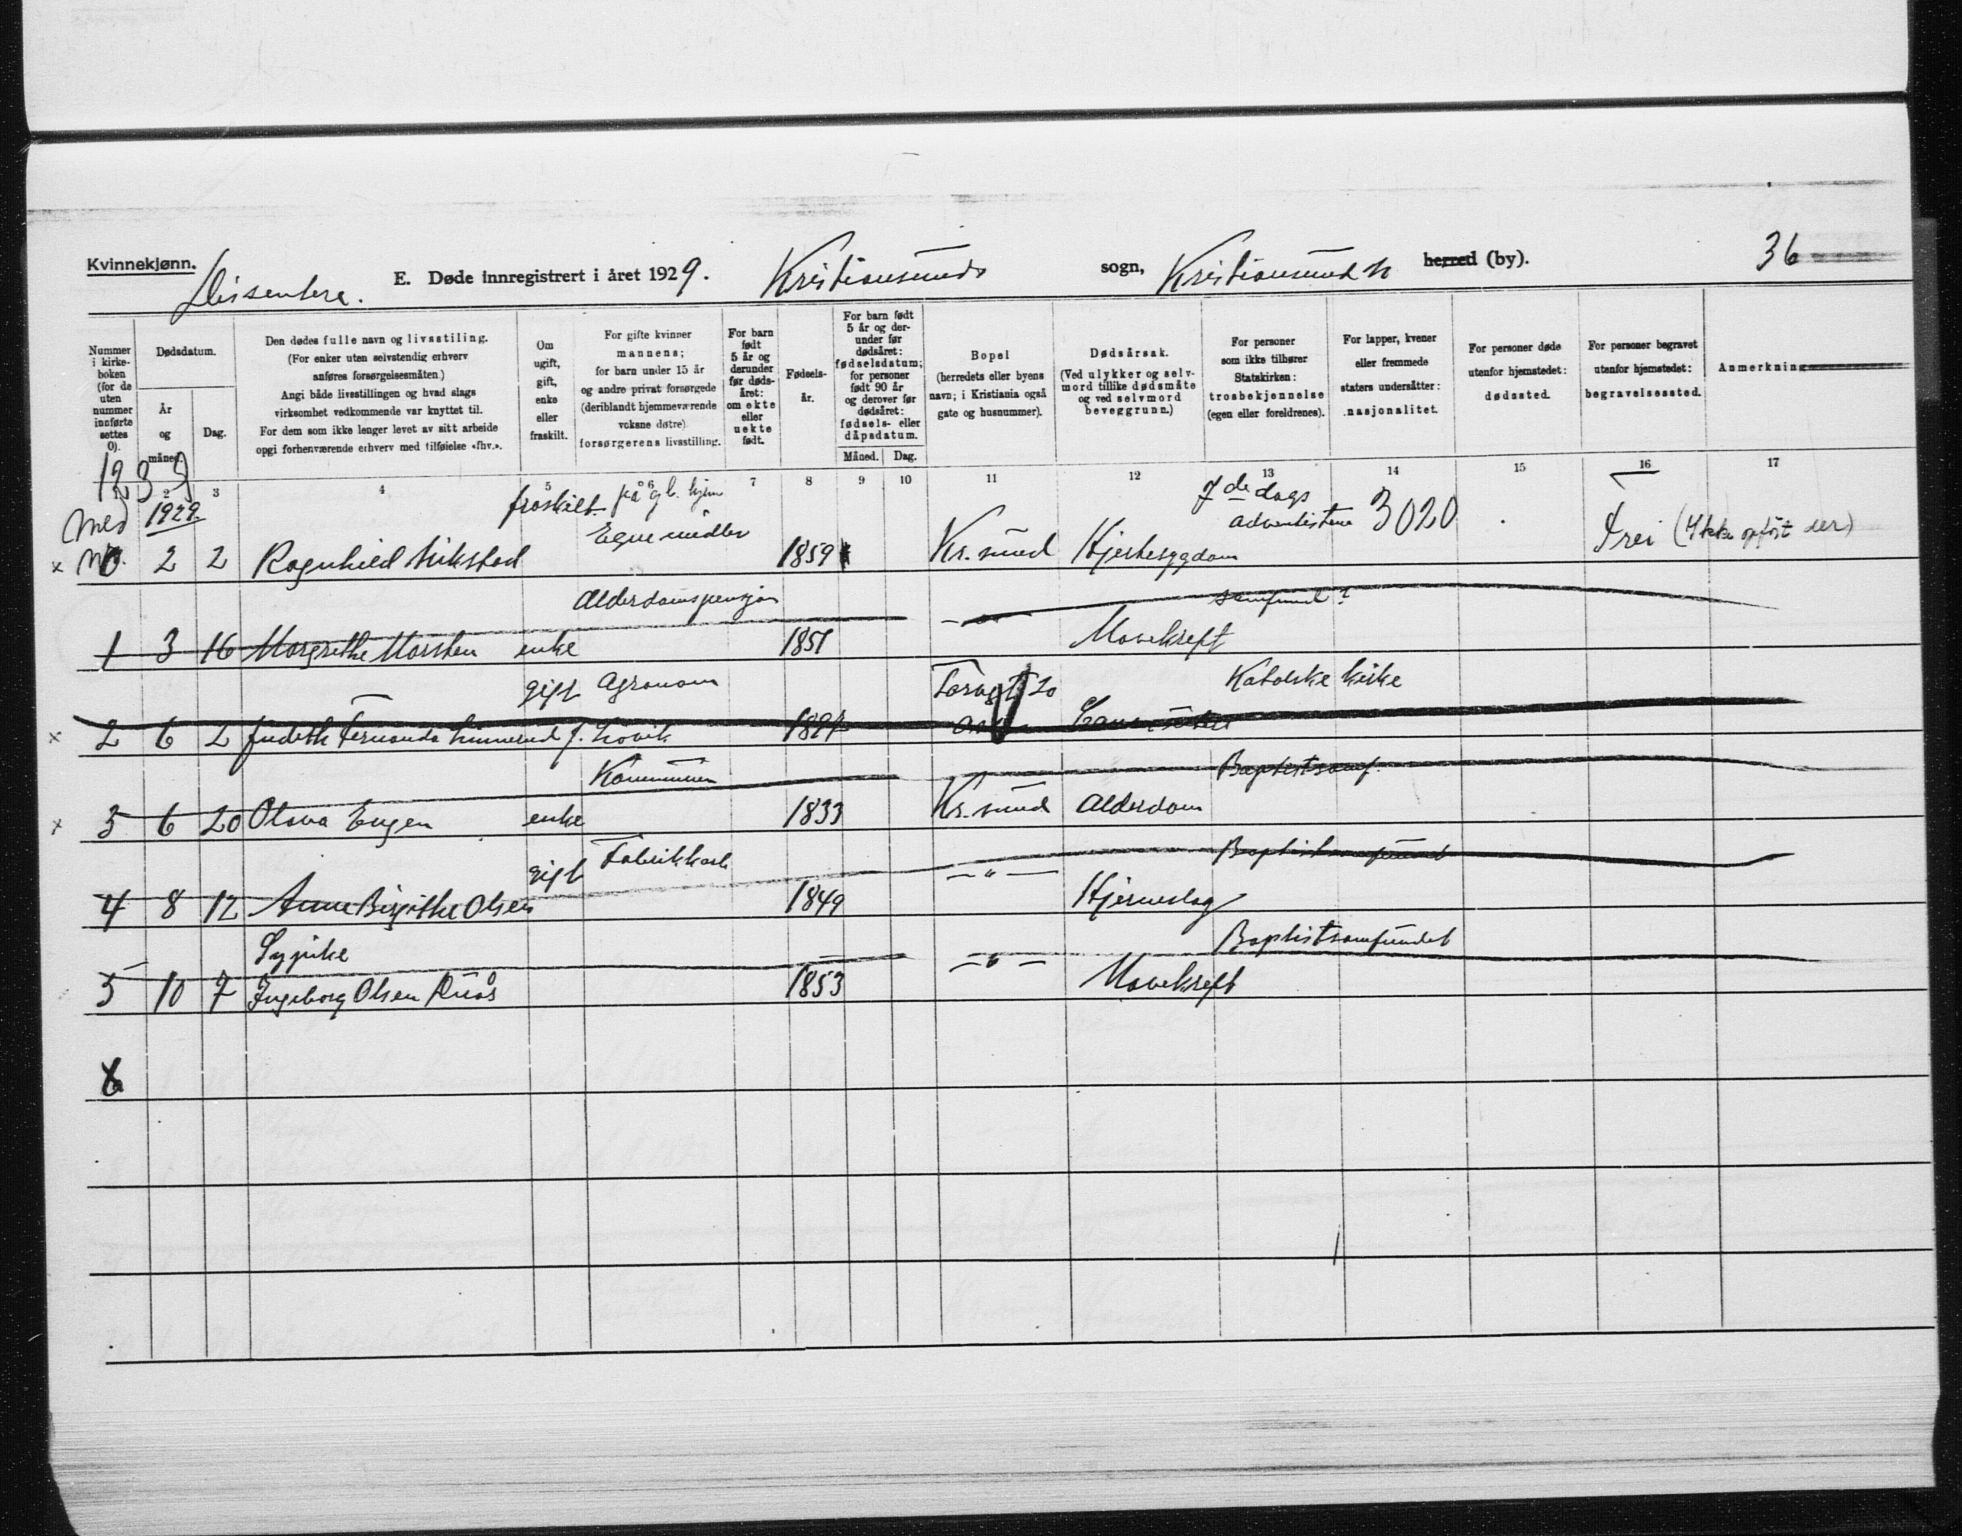 Kvinnekjønn.
Dissentere.
E. Døde innregistrert i året 1929. Kristiansunds sogn, Kristiansund N herred (by).
36
Nummer i kirkeboken (for de uten nummer innførte settes 0).
Dødsdatum.
År og måned.
Dag.
Den dødes fulle navn og livsstiling.
(For enker uten selvstendig erhverv anføres forsørgelsesmåten.)
Angi både livsstillingen og hvad slags virksomhet vedkommende var knyttet til.
For dem som ikke lenger levet av sitt arbeide opgi forhenværende erhverv med tilføielse «fhv.».
Om ugift, gift, enke eller fraskilt.
For gifte kvinner mannens; for barn under 15 år og andre privat forsørgede (deriblandt hjemmeværende voksne døtre) forsørgerens livsstilling.
For barn født 5 år og derunder før dødsåret: om ekte eller uekte født.
Fødselsår.
For barn født 5 år og derunder før dødsåret: fødselsdatum; for personer født 90 år og derover før dødsåret: fødsels- eller dåpsdatum.
Måned. Dag.
Bopel (herredets eller byens navn; i Kristiania også gate og husnummer).
Dødsårsak.
(Ved ulykker og selvmord tillike dødsmåte og ved selvmord beveggrunn.)
For personer som ikke tilhører Statskirken: trosbekjennelse (egen eller foreldrenes).
For lapper, kvener eller fremmede staters undersåtter: nasjonalitet.
For personer døde utenfor hjemstedet: dødssted.
For personer begravet utenfor hjemstedet: begravelsessted.
Anmerkning
2 3 4 5 6 7 8 9 10 11 12 13 14 15 16 17
1239
1929. fraskilt på g.b. hjem 7de dags
Med Egne midler adventistene 3020
x 2 2 Ragnhild 1859 Kr. sund Hjertesygdom Frei (Ikke opført der)
Alderdomspensjon — " — samfund?
1 3 16 Margrethe enke 1851 Mavekreft
gift Agronom 20 Katolske kirke
x 2 6 2 Judith Fernanda f.
Kommunen Baptistsamf.
x 3 6 20 Olava Engen enke 1833 Kr. sund Alderdom
gift Fabrikkarb. — " — Baptistsamfundet
4 8 12 Anne Birgithe Olsen 1849 Hjerneslag
Sypike — " — Baptistsamfundet
5 10 7 Ingeborg Olsen 1853 Mavekreft
6